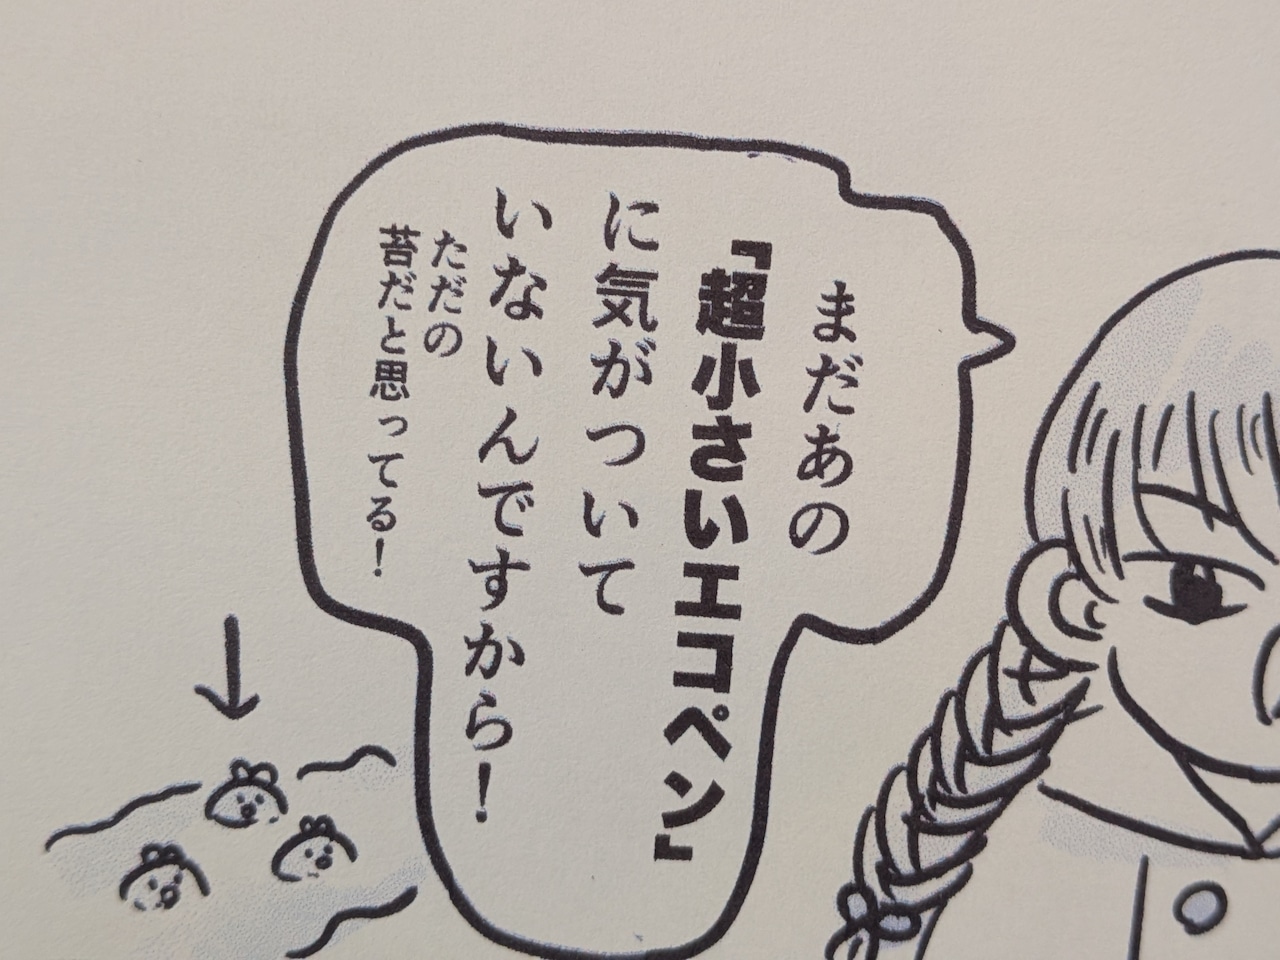 まだあの
『超小さいエコペン』
に気がついて
いないんですから!
ただの
苔だと思ってる!